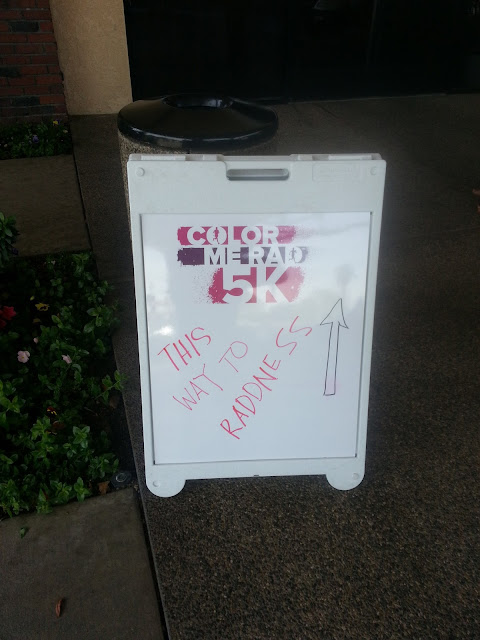 COLOR
ME RAD
5K
THIS
WAY TO
RADDNESS